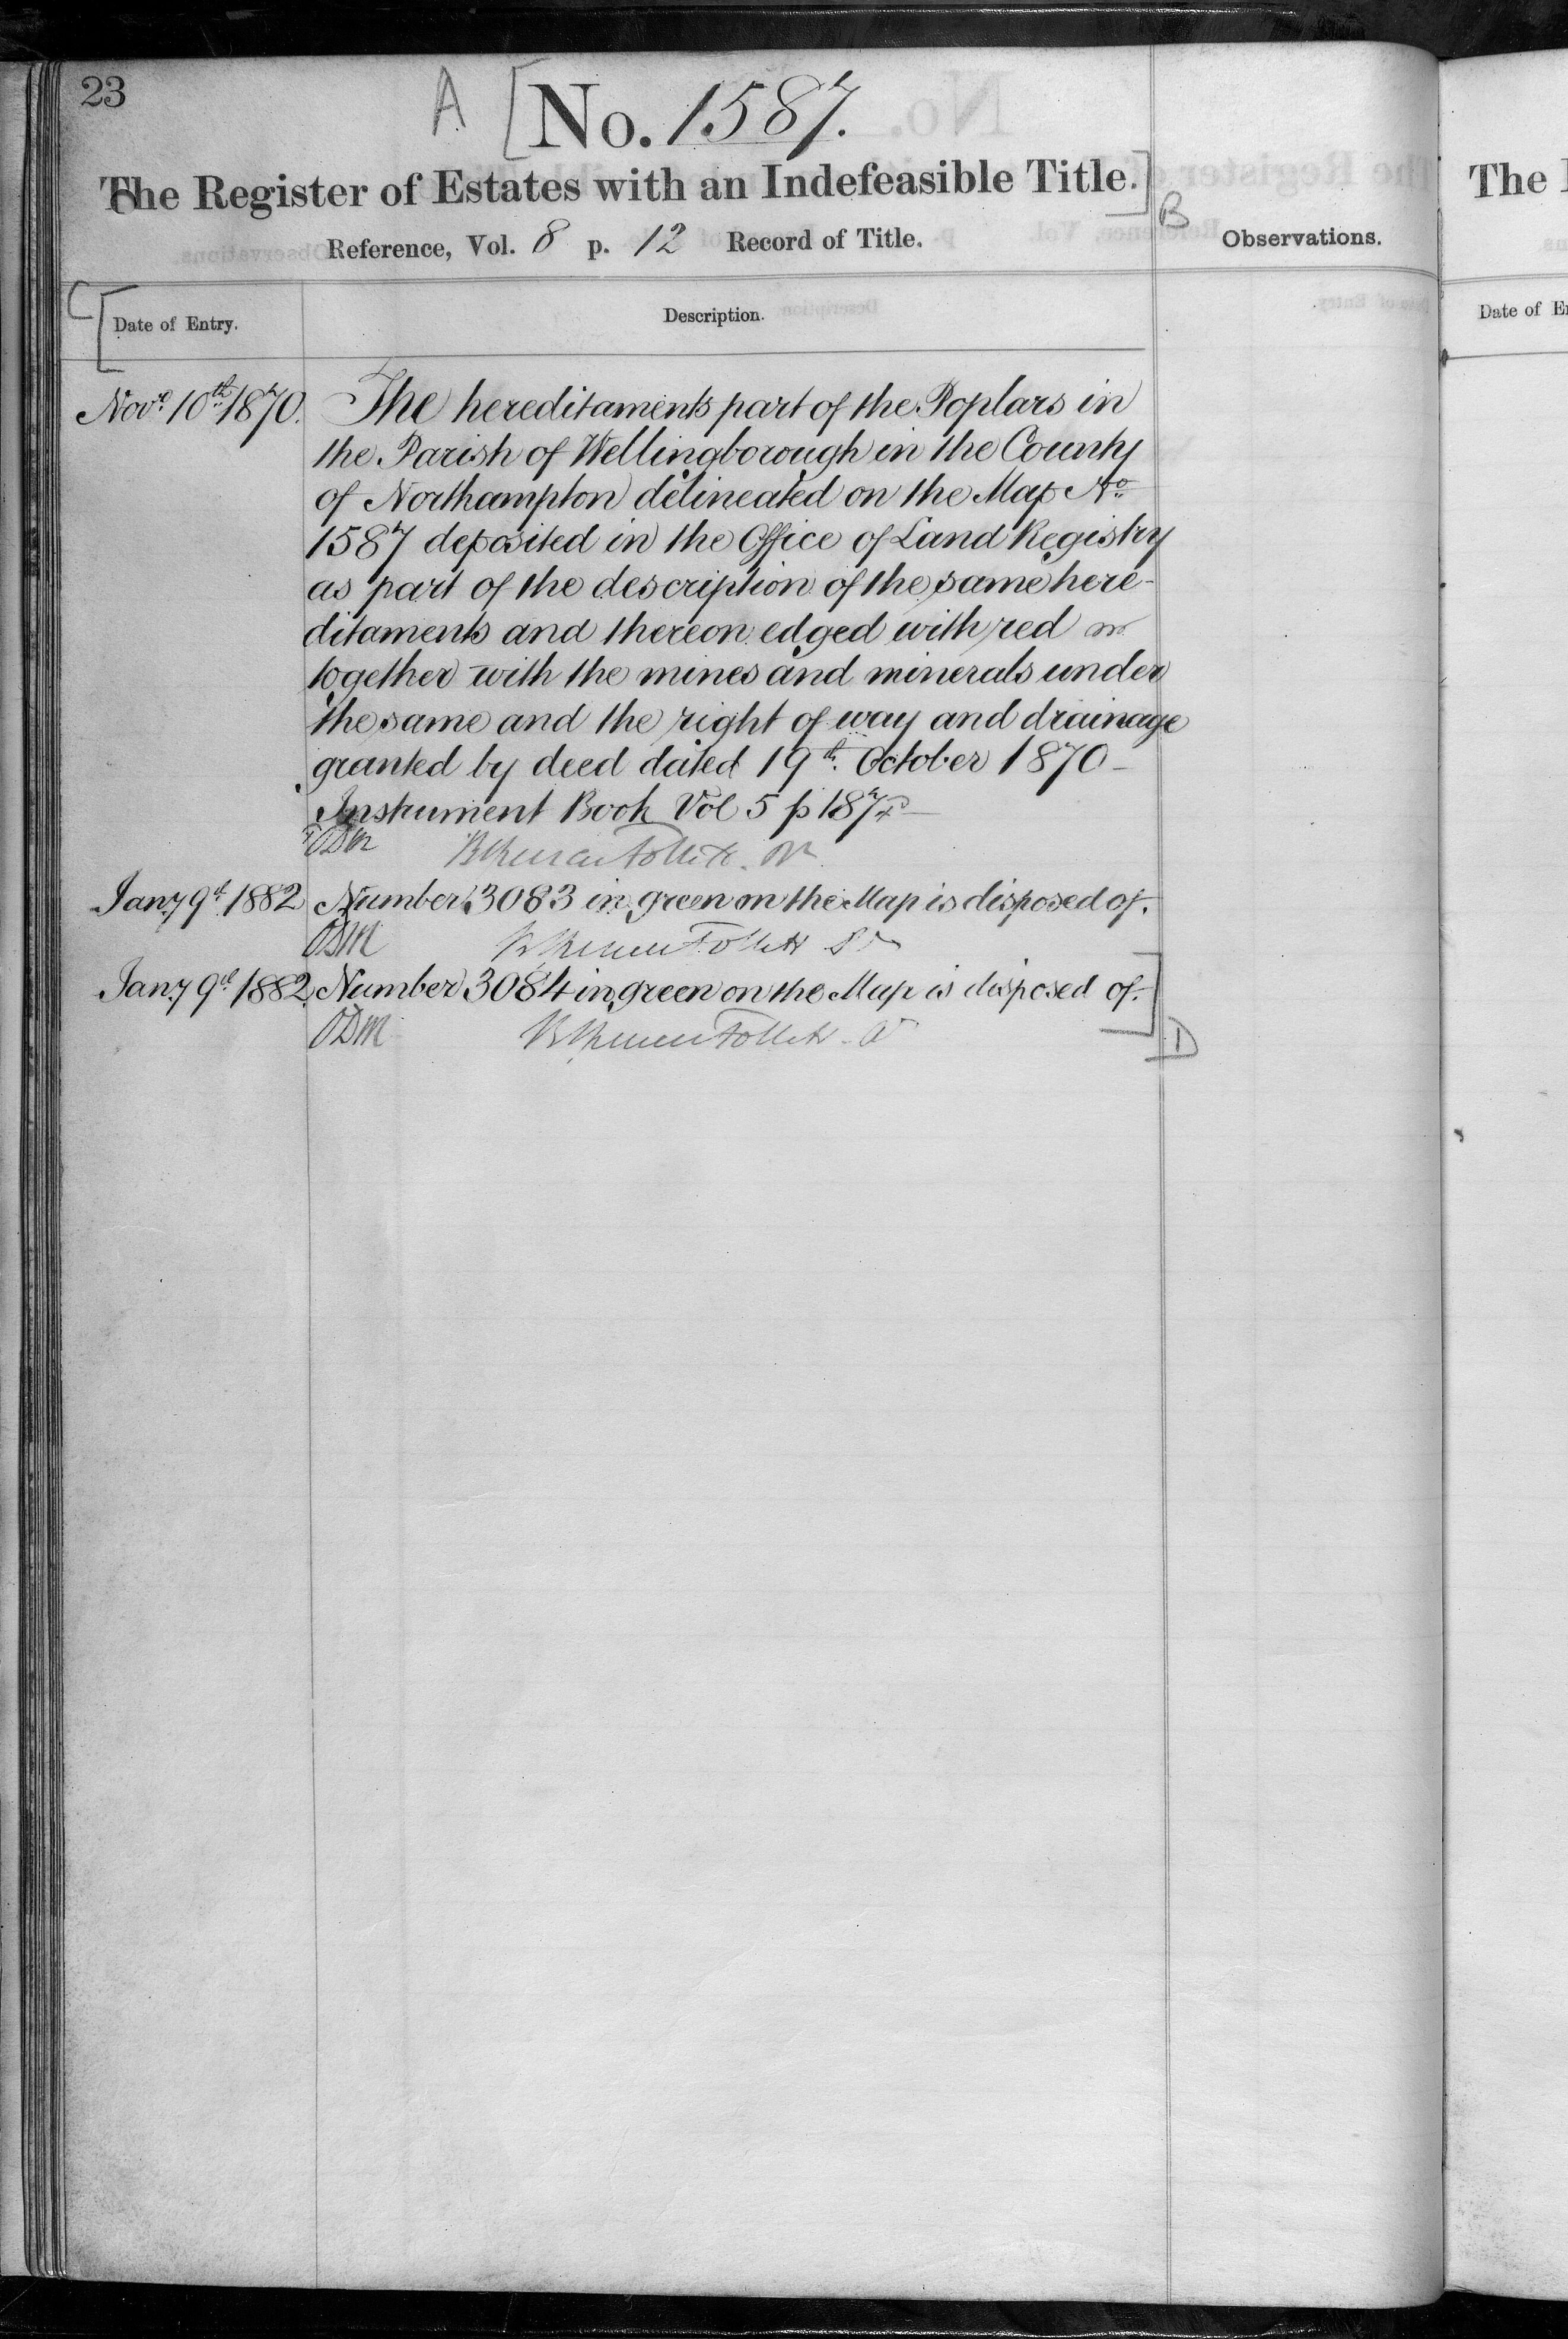 23
A [No. 1587.
The Register of Estates with an Indefeasible Title.] B
Reference, Vol. 8 p. 12 Record of Title.
Observations.
C [Date of Entry.
Description.
Novr. 10th 1870. The hereditaments part of the Poplars in
the Parish of Wellingborough in the County
of Northampton delineated on the Map No.
1587 deposited in the Office of Land Registry
as part of the description of the same here-
ditaments and thereon edged with red
together with the mines and minerals under
the same and the right of way and drainage
granted by deed dated 19th. October 1870 -
Instrument Book Vol 5 p 187
ODM
Jany 9th 1882 Number 3083 in green on the Map is disposed of.
ODM Follett
Jany 9th 1882 Number 3084 in green on the Map is disposed of.]
ODM Follett D
The
Date of